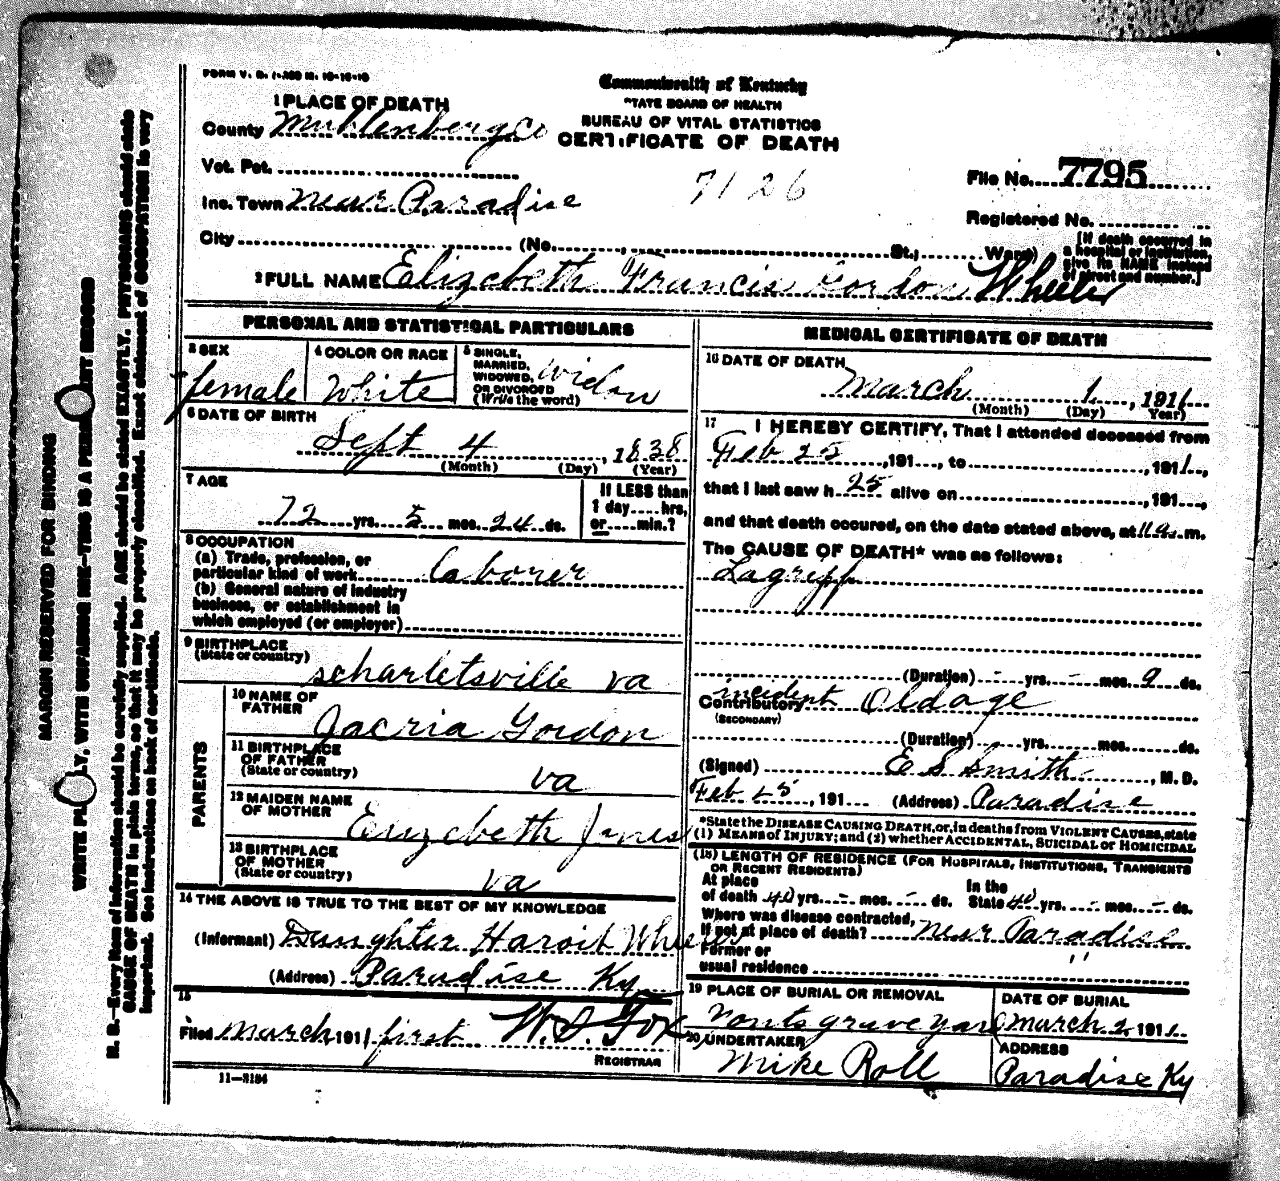 FORM V. S. 1-A50 M. 10-16-10
Commonwealth of Kentucky
STATE BOARD OF HEALTH
BUREAU OF VITAL STATISTICS
CERTIFICATE OF DEATH
1 PLACE OF DEATH
County Muhlenberg Co
Vot. Pct.
Inc. Town near Paradise
7126
File No. 7795
Registered No.
City (No. , St., Ward)
[If death occurred in a hospital or institution, give its NAME instead of street and number.]
2 FULL NAME Elizebeth Francis Gordon Wheeler
PERSONAL AND STATISTICAL PARTICULARS
3 SEX
female
4 COLOR OR RACE
White
5 SINGLE, MARRIED, WIDOWED, OR DIVORCED (Write the word)
widow
6 DATE OF BIRTH
Sept 4, 1838
(Month) (Day) (Year)
7 AGE
72 yrs. 5 mos. 24 ds.
If LESS than 1 day.....hrs, or.....min.?
8 OCCUPATION
(a) Trade, profession, or particular kind of work laborer
(b) General nature of industry business, or establishment in which employed (or employer)
9 BIRTHPLACE
(State or country)
scharletsville va
PARENTS
10 NAME OF FATHER
Gordon
11 BIRTHPLACE OF FATHER
(State or country)
va
12 MAIDEN NAME OF MOTHER
Elizebeth Jones
13 BIRTHPLACE OF MOTHER
(State or country)
va
14 THE ABOVE IS TRUE TO THE BEST OF MY KNOWLEDGE
(Informant) Daughter Wheeler
(Address) Paradise Ky
15
Filed march 1911 first W. D. Fox
REGISTRAR
11-2184
MEDICAL CERTIFICATE OF DEATH
16 DATE OF DEATH
March 1, 1911
(Month) (Day) Year)
17 I HEREBY CERTIFY, That I attended deceased from
Feb 25, 191..., to , 1911,
that I last saw h 25 alive on , 191...,
and that death occured, on the date stated above, at 11 a. m.
The CAUSE OF DEATH* was as follows:
Lagripp
(Duration) - yrs. - mos. 9 ds.
Contributory incident Oldage
(SECONDARY)
(Duration) yrs. mos. ds.
(Signed) E S Smith, M. D.
Feb 25, 191... (Address) Paradise
*State the DISEASE CAUSING DEATH, or, in deaths from VIOLENT CAUSES, state
(1) MEANS of INJURY; and (2) whether ACCIDENTAL, SUICIDAL or HOMICIDAL
(18) LENGTH OF RESIDENCE (FOR HOSPITALS, INSTITUTIONS, TRANSIENTS
OR RECENT RESIDENTS)
At place of death 40 yrs. - mos. - ds. In the State 40 yrs. - mos. - ds.
Where was disease contracted, If not at place of death? near Paradise
Former or usual residence "
19 PLACE OF BURIAL OR REMOVAL
grave yard
DATE OF BURIAL
march 2 1911.
20 UNDERTAKER
Mike Roll
ADDRESS
Paradise Ky
MARGIN RESERVED FOR BINDING
WRITE PLAINLY, WITH UNFADING INK—THIS IS A PERMANENT RECORD
N. B.—Every item of information should be carefully supplied. AGE should be stated EXACTLY. PHYSICIANS should state
CAUSE OF DEATH in plain terms, so that it may be properly classified. Exact statement of OCCUPATION is very
important. See instructions on back of certificate.